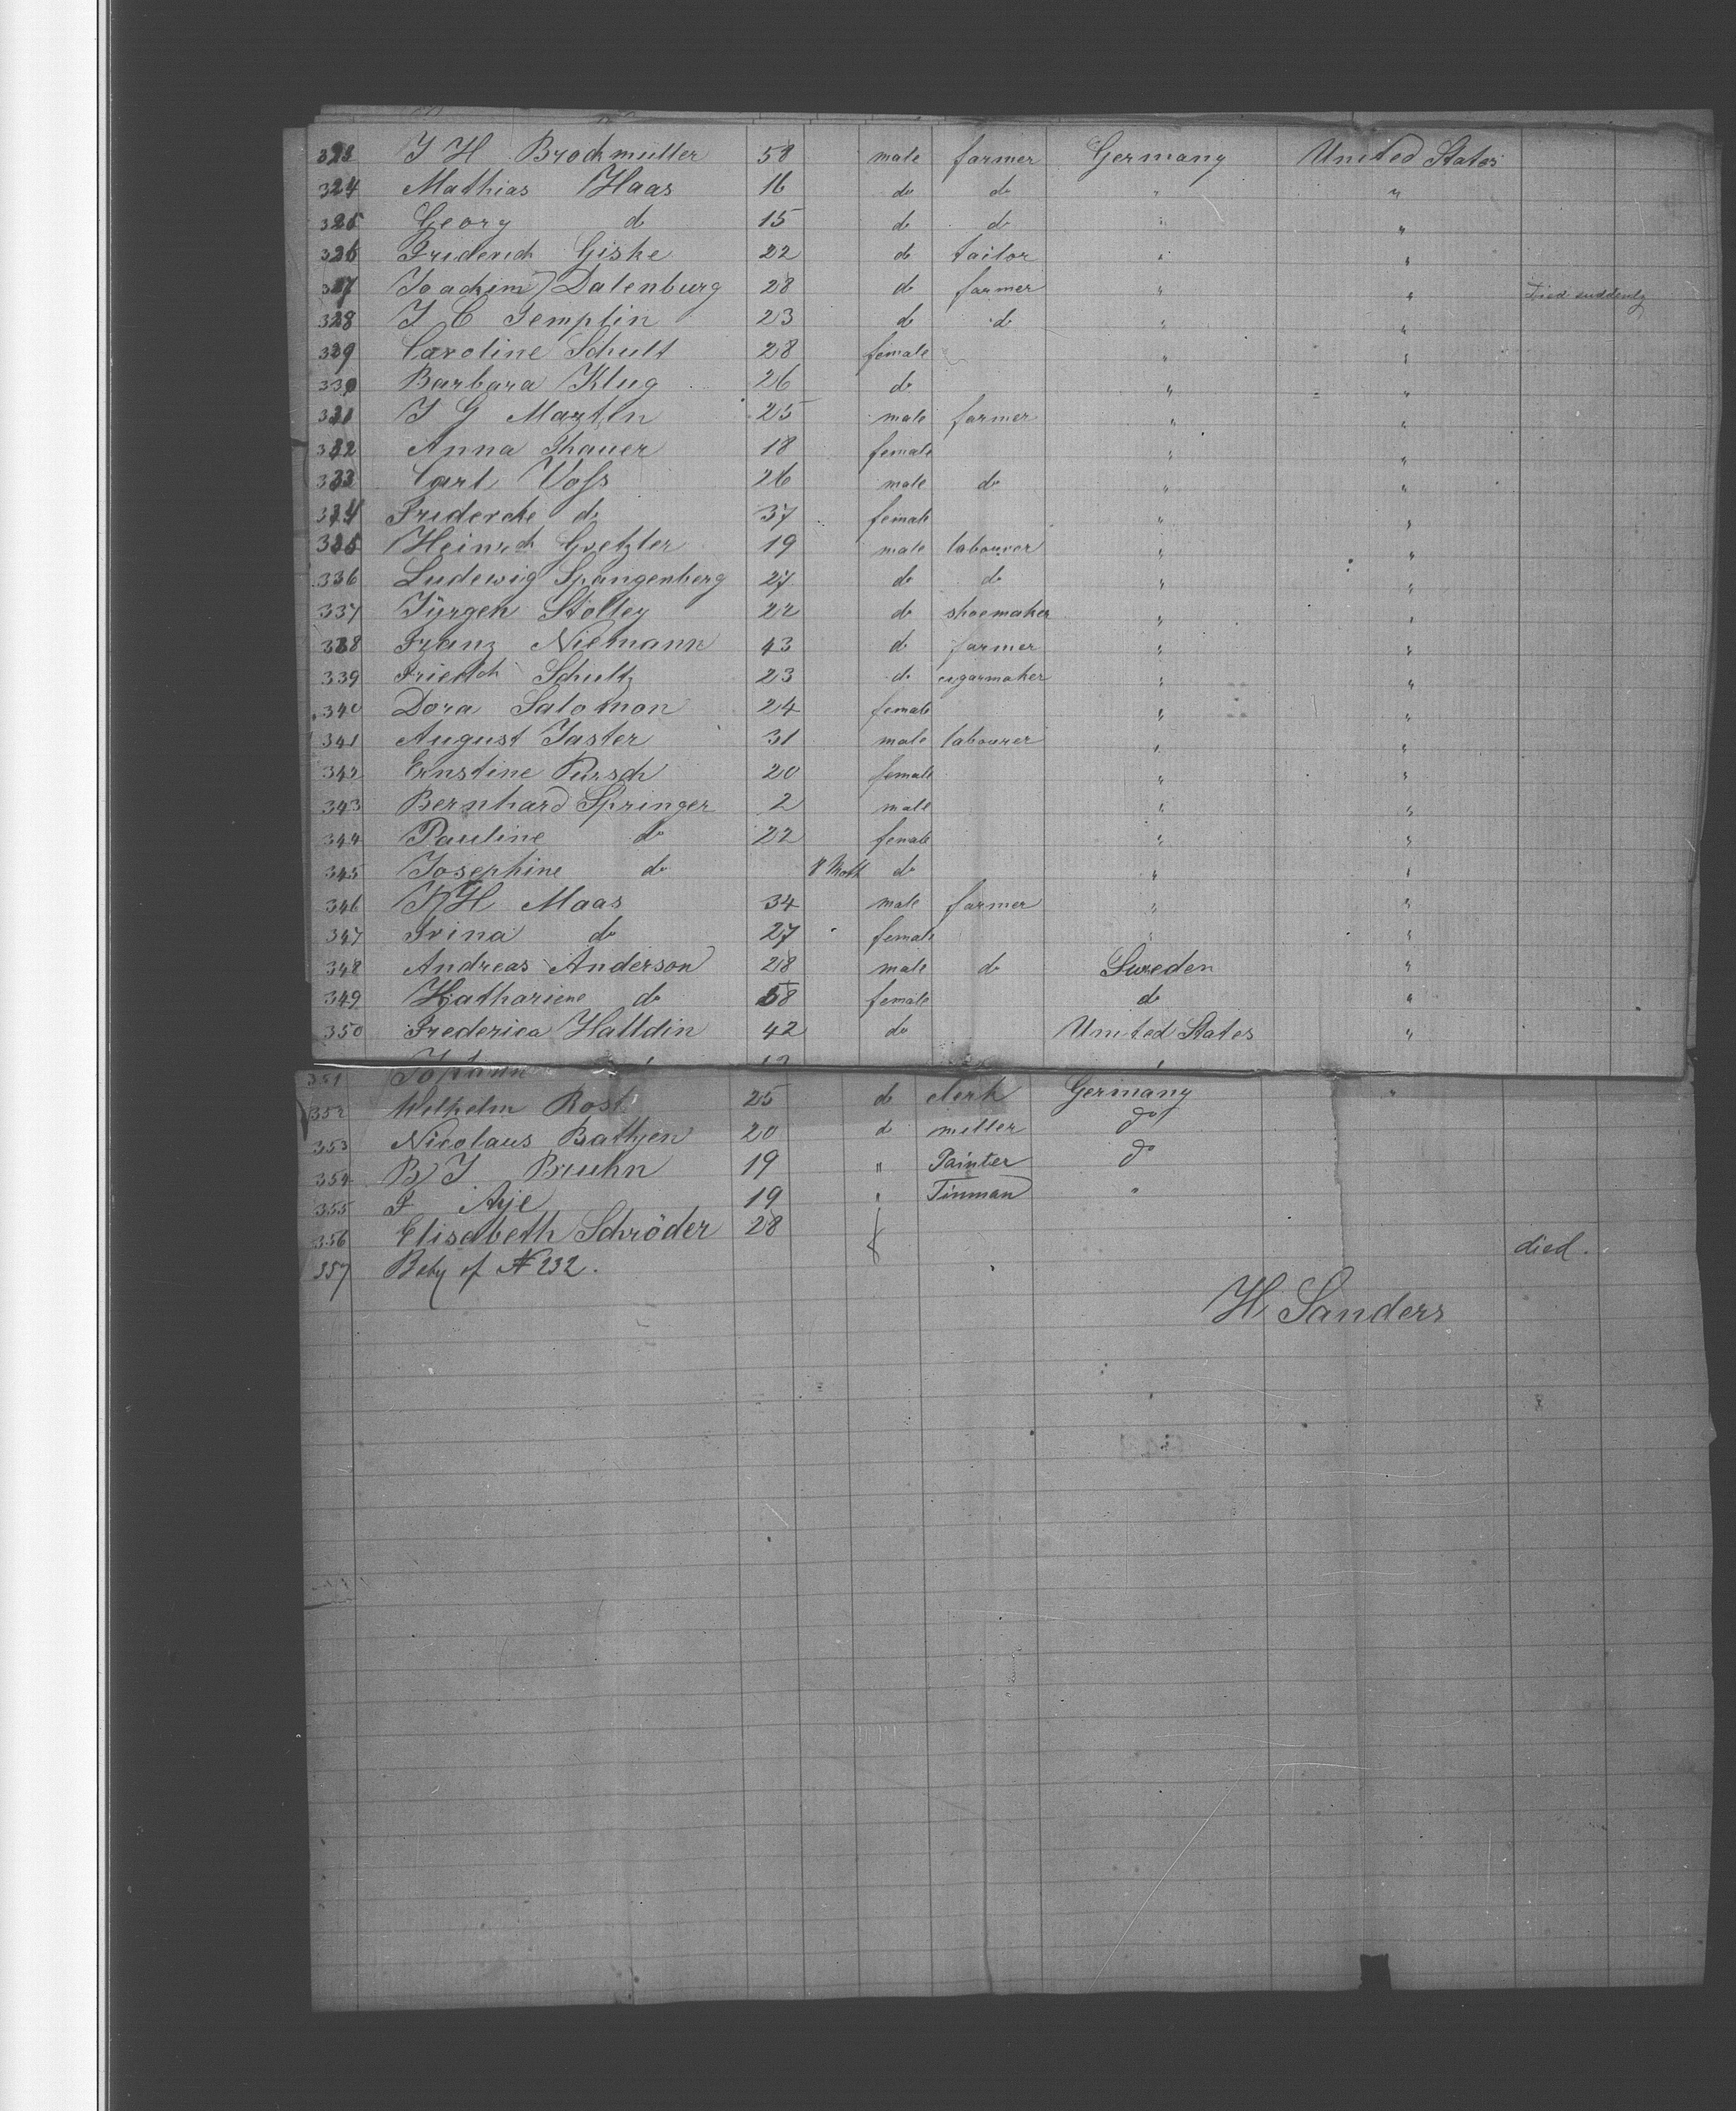 323 J H Brockmuller 58 male farmer Germany United States
324 Mathias Haas 16 do do " "
325 Georg do 15 do do " "
326 Friderich Giske 22 do tailor " "
327 Joachim Dalenburg 28 do farmer " " Died suddenly
328 J C Templin 23 do do " "
329 Caroline Schult 28 female " "
330 Barbara Klug 26 do " "
331 J G Martin 25 male farmer " "
332 Anna Thauer 18 female " "
333 Carl Voss 26 male do " "
334 do 37 female " "
335 Heinrch Goetzler 19 male labourer " "
336 Ludewig Spangenberg 27 do do " "
337 Jürgen Stolley 22 do shoemaker " "
338 Franz Niemann 43 do farmer " "
339 Friedch Schultz 23 do cigarmaker " "
340 Dora Salomon 24 female " "
341 August Jaster 31 male labourer " "
342 Ernstine Pursch 20 female " "
343 Bernhard Springer 2 male " "
344 Pauline do 22 female " "
345 Josephine do 8 Moth do " "
346 H Maas 34 male farmer " "
347 Trina do 27 female " "
348 Andreas Anderson 28 male do Sweden "
349 Kathariene do 58 female do "
350 Frederica Halldin 42 do United States "
351 Johann
352 Wilhelm Rost 25 do clerk Germany "
353 Nicolaus Bathjen 20 do miller do
354 B J Bruhn 19 " Painter do
355 F Aje 19 " Tinman "
356 Elisabeth Schröder 28 f
357 Beby of N 232. f died.
H Sanders